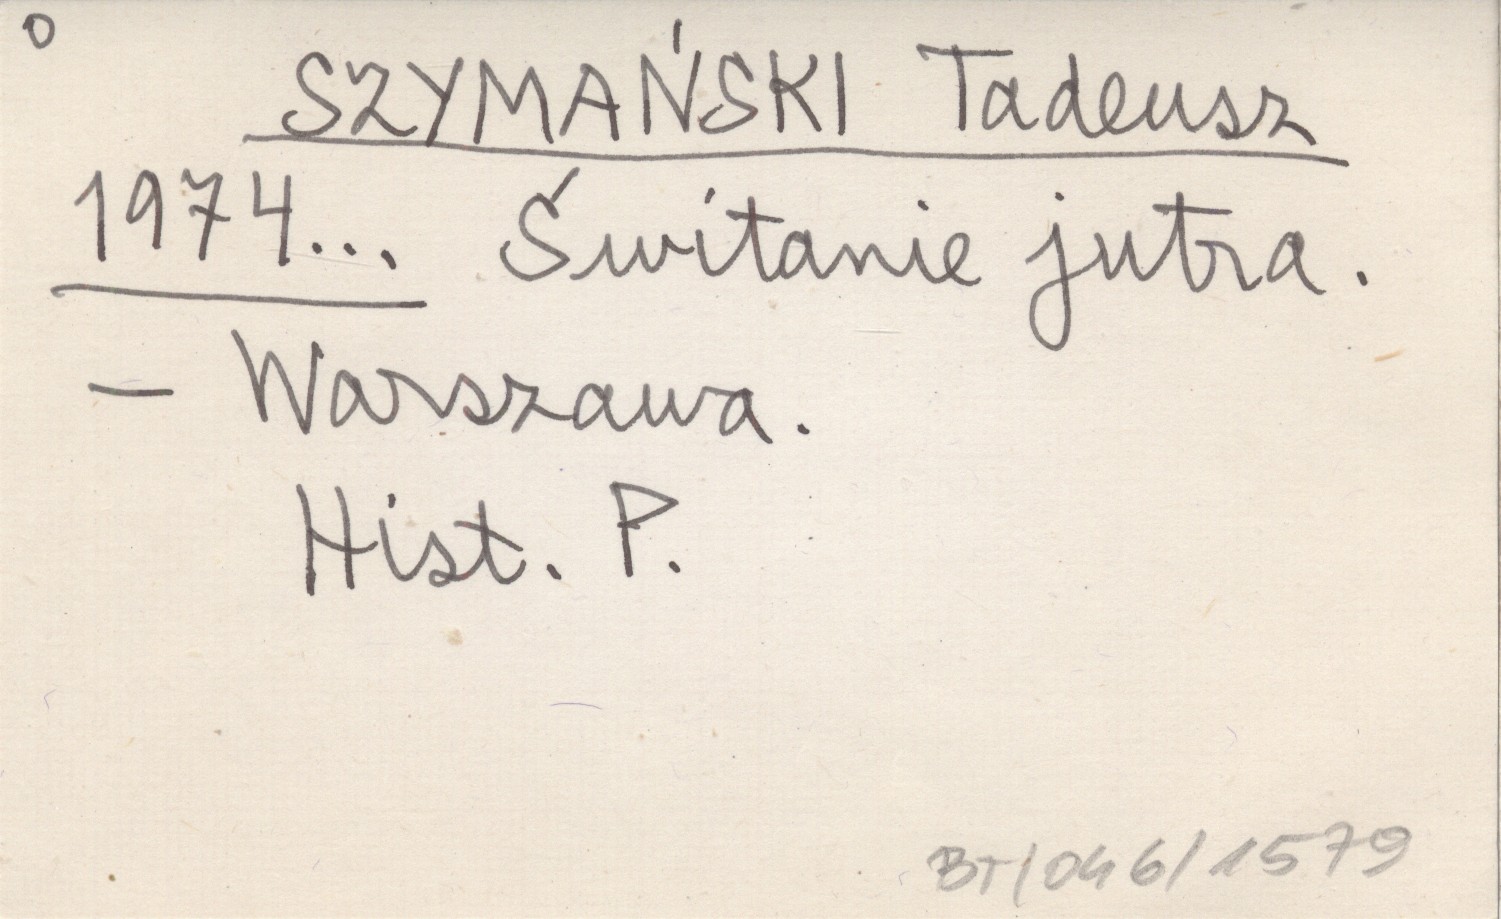 0
SZYMAŃSKI Tadeusz
1974... Świtanie jutra.
— Warszawa.
Hist. P.
BT/046/1579